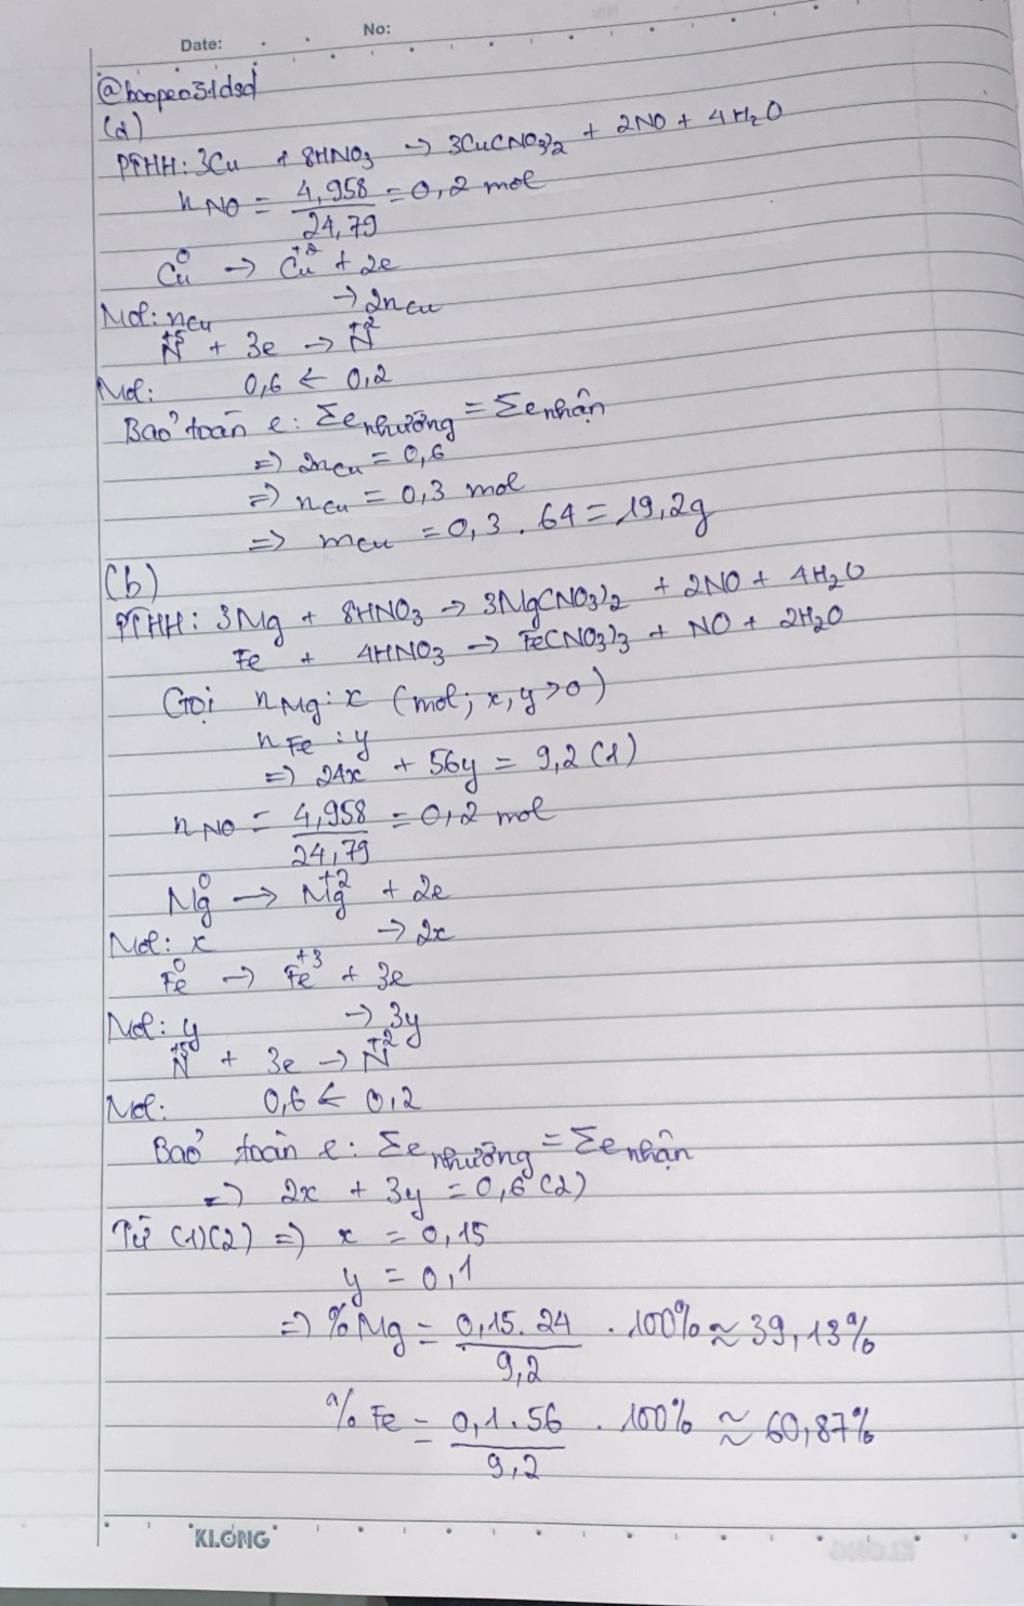 Date:
No:
@boopeo31dsd
(a)
PTHH: 3Cu + 8HNO3 → 3Cu(NO3)2 + 2NO + 4H2O
nNO = 4,958/24,79 = 0,2 mol
Cu⁰ → Cu⁺² + 2e
Mol: nCu → 2nCu
N⁺⁵ + 3e → N⁺²
Mol: 0,6 ← 0,2
Bảo toàn e: Σe nhường = Σe nhận
=> 2nCu = 0,6
=> nCu = 0,3 mol
=> mCu = 0,3 . 64 = 19,2g
(b)
PTHH: 3Mg + 8HNO3 → 3Mg(NO3)2 + 2NO + 4H2O
Fe + 4HNO3 → Fe(NO3)3 + NO + 2H2O
Gọi nMg: x (mol; x, y > 0)
nFe : y
=> 24x + 56y = 9,2 (1)
nNO = 4,958/24,79 = 0,2 mol
Mg⁰ → Mg⁺² + 2e
Mol: x → 2x
Fe⁰ → Fe⁺³ + 3e
Mol: y → 3y
N⁺⁵ + 3e → N⁺²
Mol: 0,6 ← 0,2
Bảo toàn e: Σe nhường = Σe nhận
=> 2x + 3y = 0,6 (2)
Từ (1)(2) => x = 0,15
y = 0,1
=> %Mg = 0,15.24/9,2 . 100% ≈ 39,13%
% Fe = 0,1.56/9,2 . 100% ≈ 60,87%
KLONG